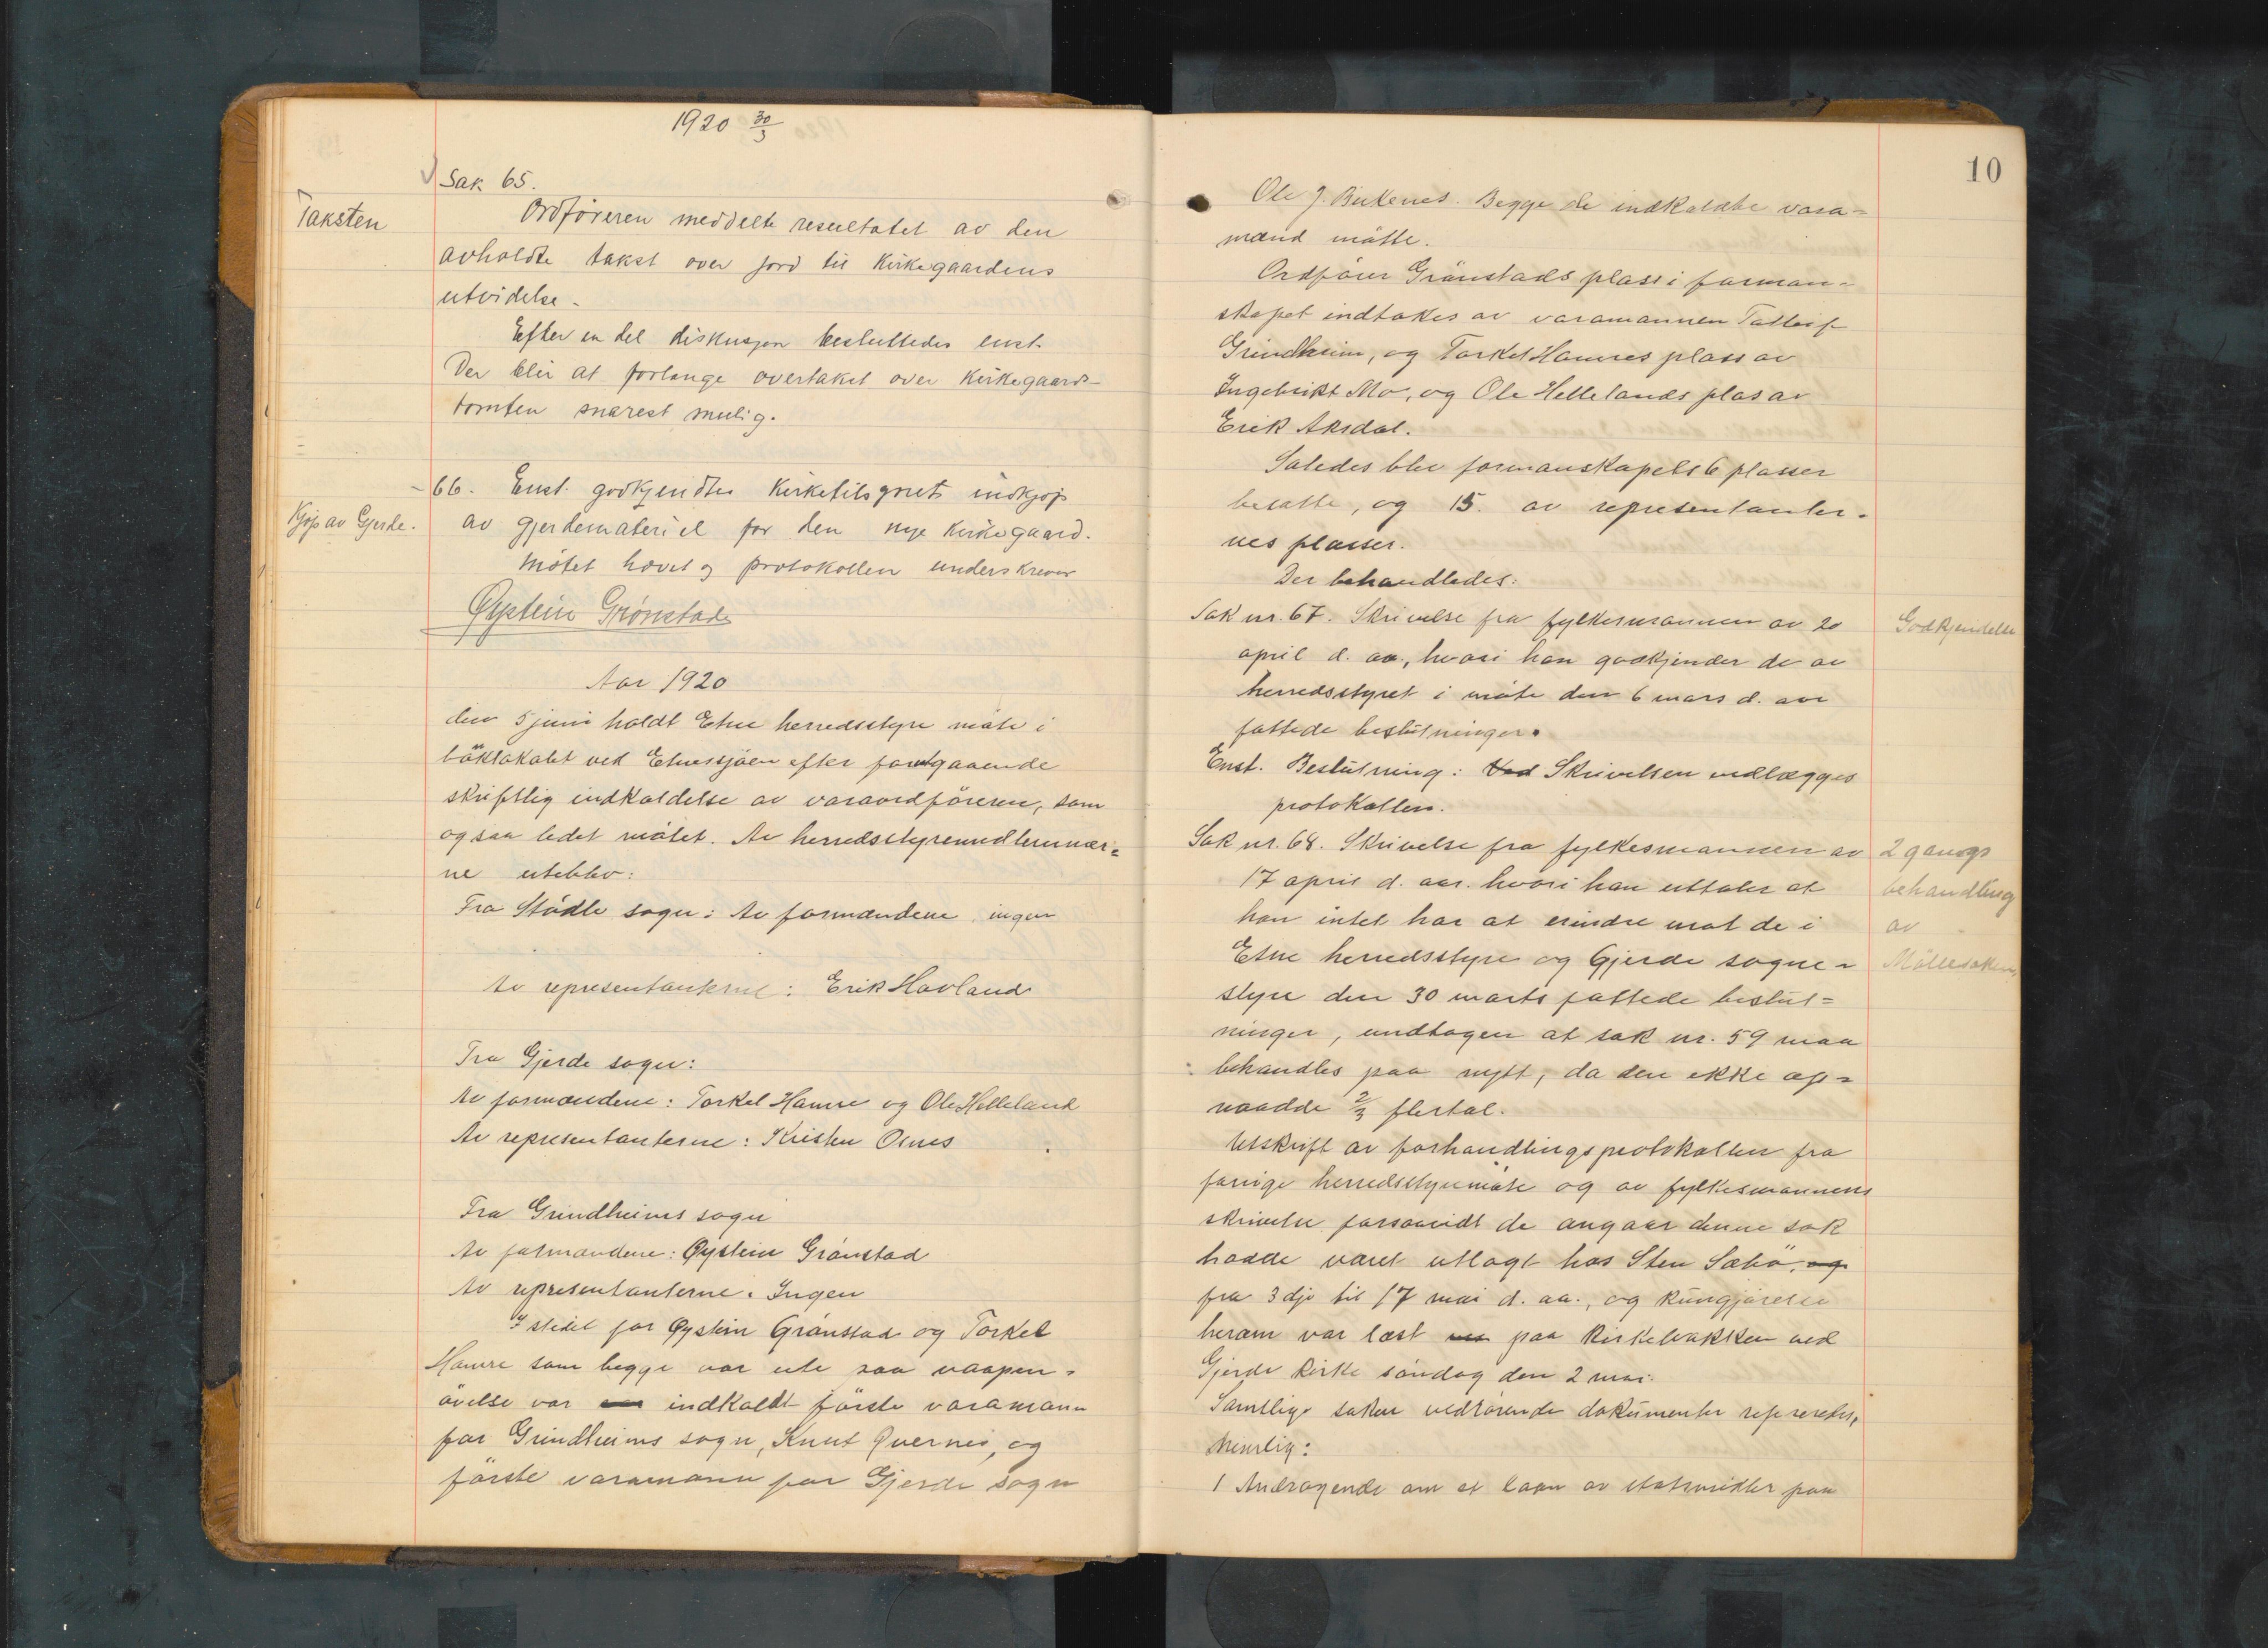 1920 30/3
Sak 65.
Taksten
Ordføreren meddelte resultatet av den
avholdte takst over jord til Kirkegaardens
utvidelse.
Efter en del diskusjon besluttedes enst.
Der blir at forlange overtakst over Kirkegaards-
tomten snarest mulig.
66. Enst. godkjendtes Kirketilsynets indkjøp
Kjøp av Gjerde.
av gjerdemateriel for den nye Kirkegaard.
Møtet hævet og protokollen underskrevet
Øystein Grønstad
Aar 1920
den 5 juni holdt Etne herredsstyre møte i
banklokalet ved Etnessjøen efter forutgaaende
skriftlig indkaldelse av varaordføreren, som
ogsaa ledet møtet. Av herredsstyremedlemmer=
ne uteblev:
Fra Stødle sogn: Av formændene ingen
Av representanterne: Erik Havland
Fra Gjerde sogn:
Av formændene: Torkel Hamre og Ole Helleland
Av representanterne: Kristen Osnes
Fra Grindheims sogn
Av formændene: Øystein Grønstad
Av representanterne: Ingen
I stedet for Øystein Grønstad og Torkel
Hamre som begge var ute paa vaapen=
øvelse var indkaldt første varamann
for Grindheims sogn, Knut Quernes, og
første varamann for Gjerde sogn
10
Ole J. Birkenes. Begge de indkaldte vara=
mænd møtte.
Ordfører Grønstads plass i forman=
skapet indtokes av varamannen Tolleif
Grindheim, og Torkel Hamres plass av
Ingebrikt Mo, og Ole Hellelands plas av
Erik Aksdal.
Saledes blev formanskapets 6 plasser
besatte, og 15. av representanter=
nes plasser.
Der behandledes:
Sak nr. 67. Skrivelse fra fylkesmannen av 20
Godkjendelse
april d. aa., hvori han godkjender de av
herredsstyret i møte den 6 mars d. aar
fattede beslutninger.
Enst. Beslutning: Ved Skrivelsen vedlægges
protokollen.
Sak nr. 68. Skrivelse fra fylkesmannen av
2 gangs
17 april d. aar. hvori han uttaler at
behandling
han intet har at erindre mot de i
av
Etne herredsstyre og Gjerde sogne=
Møllesaken
styre den 30 marts fattede beslut=
ninger, undtagen at sak nr. 59 maa
behandles paa nytt, da den ikke op=
naadde 2/3 flertal.
Utskrift av forhandlingsprotokollen fra
forrige herredsstyremøte og av fylkesmannens
skrivelse forsaavidt de angaar denne sak
hadde været utlagt hos Sten Sæbø, og
fra 3dje til 17 mai d. aa., og kungjørelse
herom var læst paa Kirkebakken ved
Gjerde Kirke søndag den 2 mai.
Samtlige saken vedrørende dokumenter refereredes,
nemlig:
1 Andragende om et laan av statsmidler paa